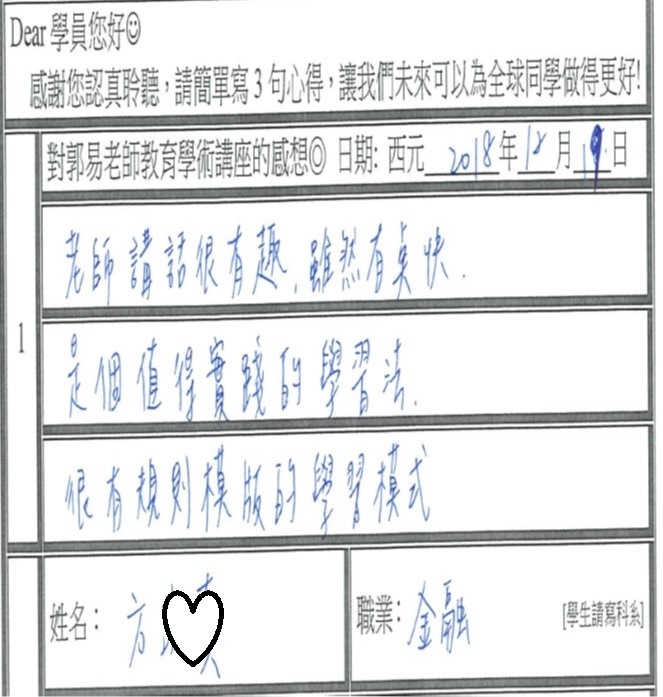 Dear 學員您好☺
感謝您認真聆聽，請簡單寫 3 句心得，讓我們未來可以為全球同學做得更好!
對郭易老師教育學術講座的感想◎ 日期: 西元 2018 年 12 月 19 日
1
老師講話很有趣,雖然有點快.
是個值得實踐的學習法.
很有規則模版的學習模式
姓名： 方
職業： 金融 [學生請寫科系]